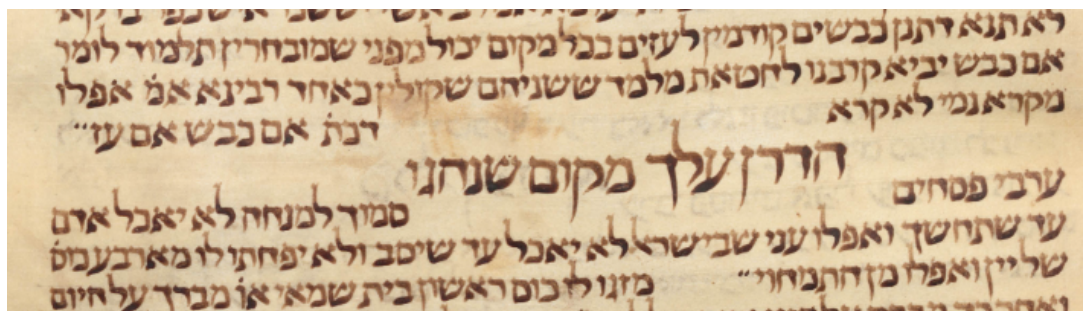 לא תנא דתנן כבשים קודמין לעזים בכל מקום יכול מפני שמובחרין תלמוד לומר
אם כבש יביא קרבנו לחטאת מלמד ששניהם שקולין כאחד רבינא אמ׳ אפלו
מקרא נמי לא קרא
דכת׳ אם כבש אם עז
הדרן עלך מקום שנהגו
ערבי פסחים
סמוך למנחה לא יאכל אדם
עד שתחשך ואפלו עני שבישראל לא יאכל עד שיסב ולא יפחתו לו מארבע כוס׳
של יין ואפלו מן התמחוי״ מזגו לו כוס ראשון בית שמאי או׳ מברך על היום